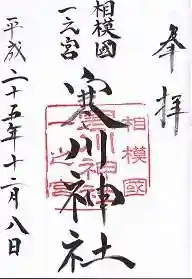 奉拝
相模國
一之宮
寒川神社
平成二十五年十二月八日
相模國
一之宮
寒川神社